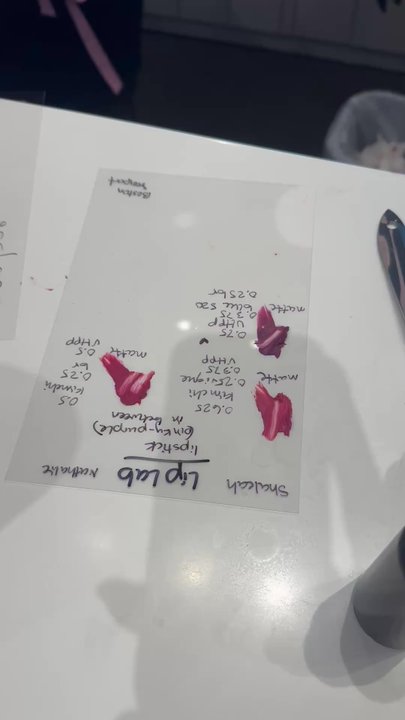 Shaleah
Lip Lab
Nathalie
lipstick
(pinky-purple)
in between
matte
0.625
Kimchi
0.25 vigue
0.375
VHPP
matte
0.75
VHPP
0.375
blue 520
0.25 br
0.5
Kimchi
0.25
br
0.5
VHPP
matte
Boston
newport